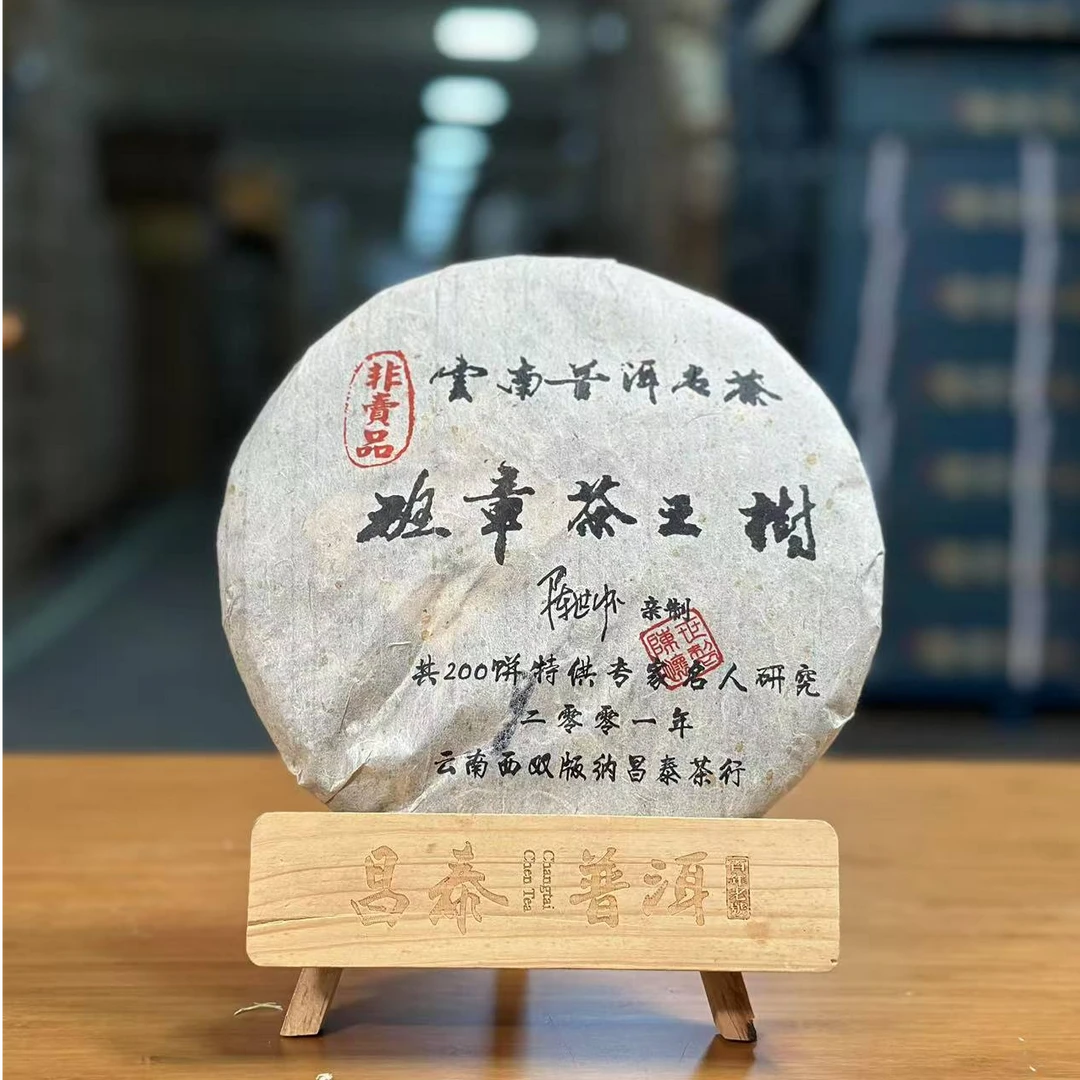 非賣品
雲南普洱名茶
班章茶王樹
陈世怀 亲制
共200饼特供专家名人研究
二零零一年
云南西双版纳昌泰茶行
昌泰
Changtai
Chen Tea
普洱